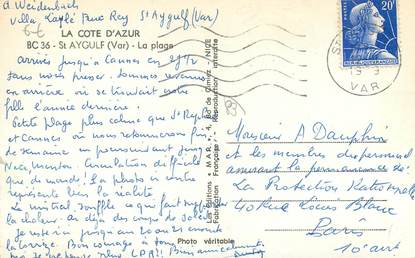 A Weidenbach
Villa Rey St Aygulf (Var)
LA COTE D'AZUR
BC 36 - St AYGULF (Var) - La plage
arrivés jusqu'à Cannes en
sans nous presser. Sommes revenus
en arrière où se trouvait notre
fille l'année dernière.
Petite plage plus calme que St
et Cannes où nous retournerons fin
de semaine en poursuivant jusqu'
Nice Menton. Circulation difficile
que de monde! La photo ci contre
représente bien la réalité
Le mistral souffle ce qui fait
la chaleur. Ai déjà des coups de soleil
Je reste ici jusqu'au 20 ou 21 courant
Bon courage à tous
Les Editions "MAR", 4, Bd de Cimiez - NICE
Fabrication Française - Reproduction interdite
Photo véritable
20F
VAR
Monsieur A Dauphin
et les membres du personnel
assurant la permanence de
La Protection
40 Rue Louis Blanc
Paris
10e arrt